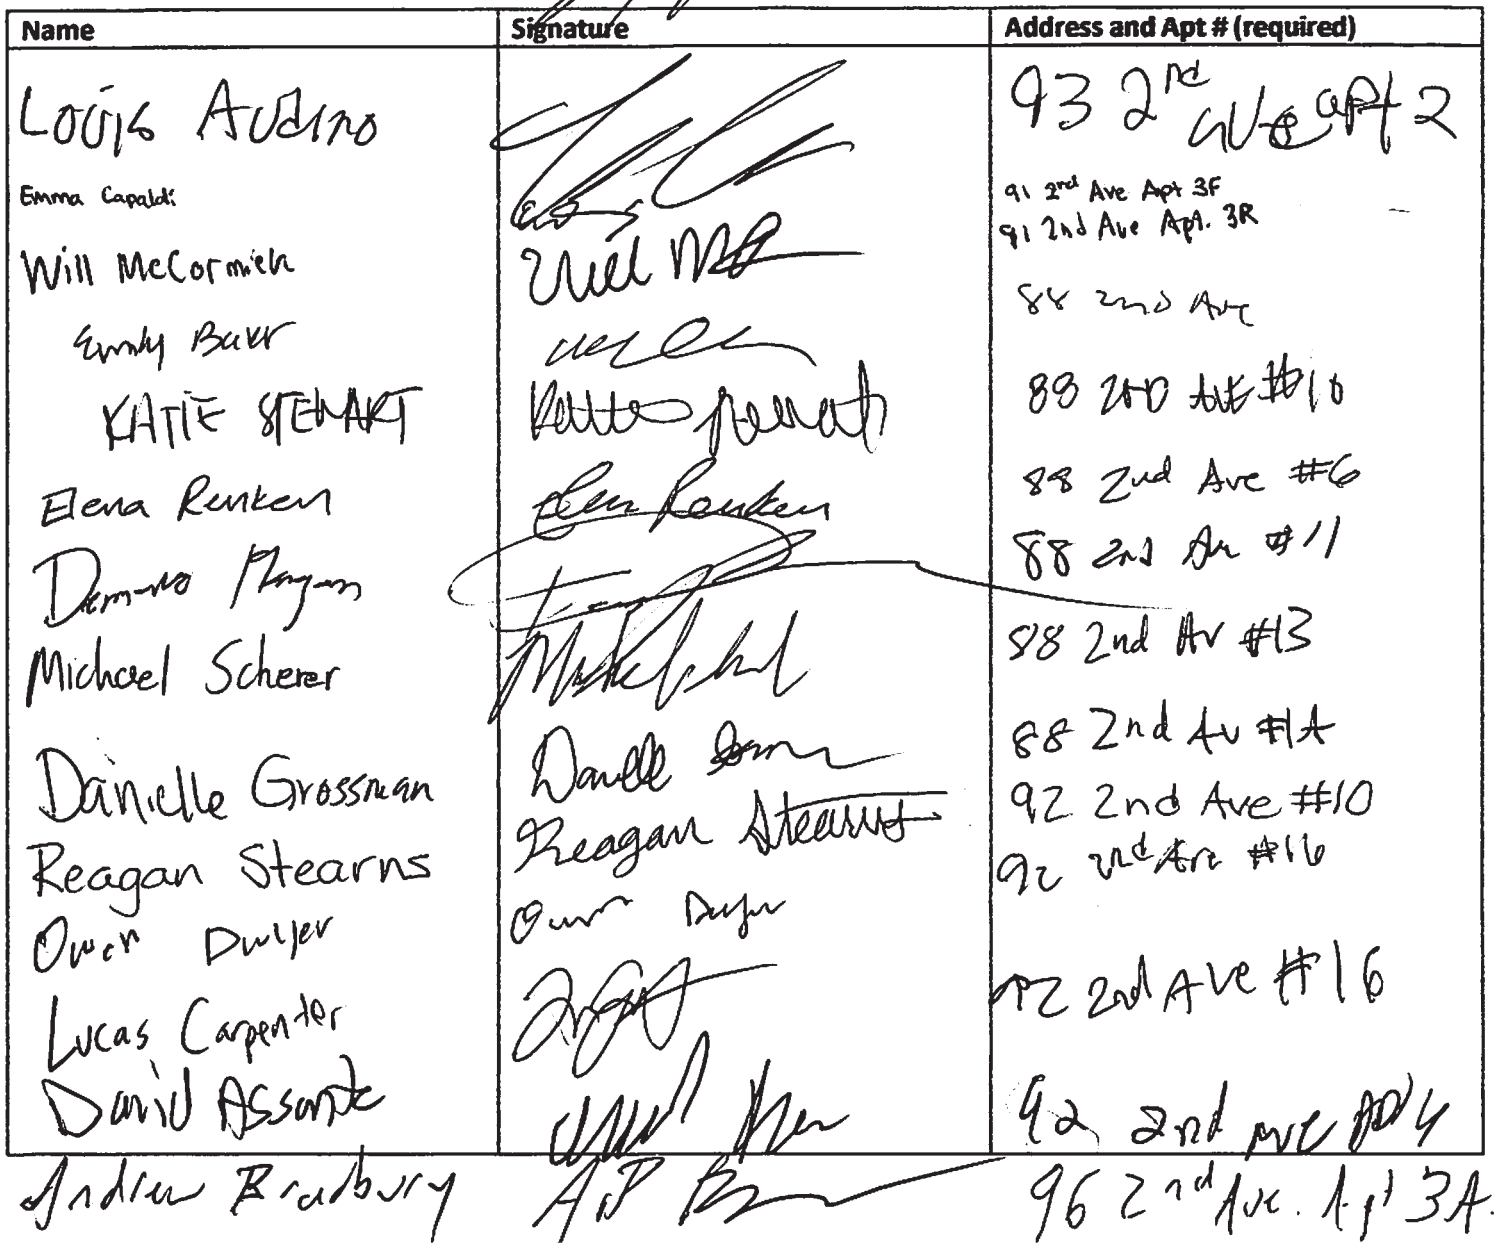 Name Signature Address and Apt # (required)
Louis Audino 93 2nd ave apt 2
Emma Capaldi 91 2nd Ave Apt 3F
Will McCormick Will 91 2nd Ave Apt. 3R
Emily Baker 88 2nd Ave
KATIE STEWART Katie Stewart 88 2ND AVE #10
Elena Renken Elena Renken 88 2nd Ave #6
88 2nd Av #11
Michael Scherer 88 2nd Av #13
Danielle Grossman Danielle 88 2nd Av #1A
Reagan Stearns Reagan Stearns 92 2nd Ave #10
Owen Dwyer Owen Dwyer 92 2nd Ave #16
Lucas Carpenter 92 2nd Ave #16
David Assante 92 2nd Ave Apt 4
Andrew Bradbury 96 2nd Ave. Apt 3A.